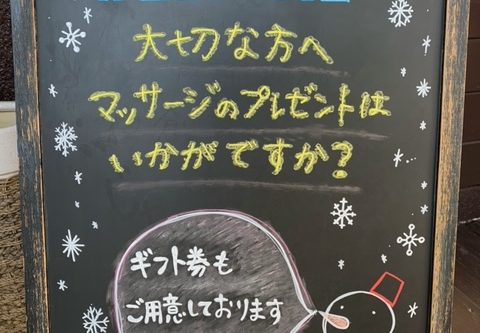 大切な方へ
マッサージのプレゼントは
いかがですか?
ギフト券も
ご用意しております